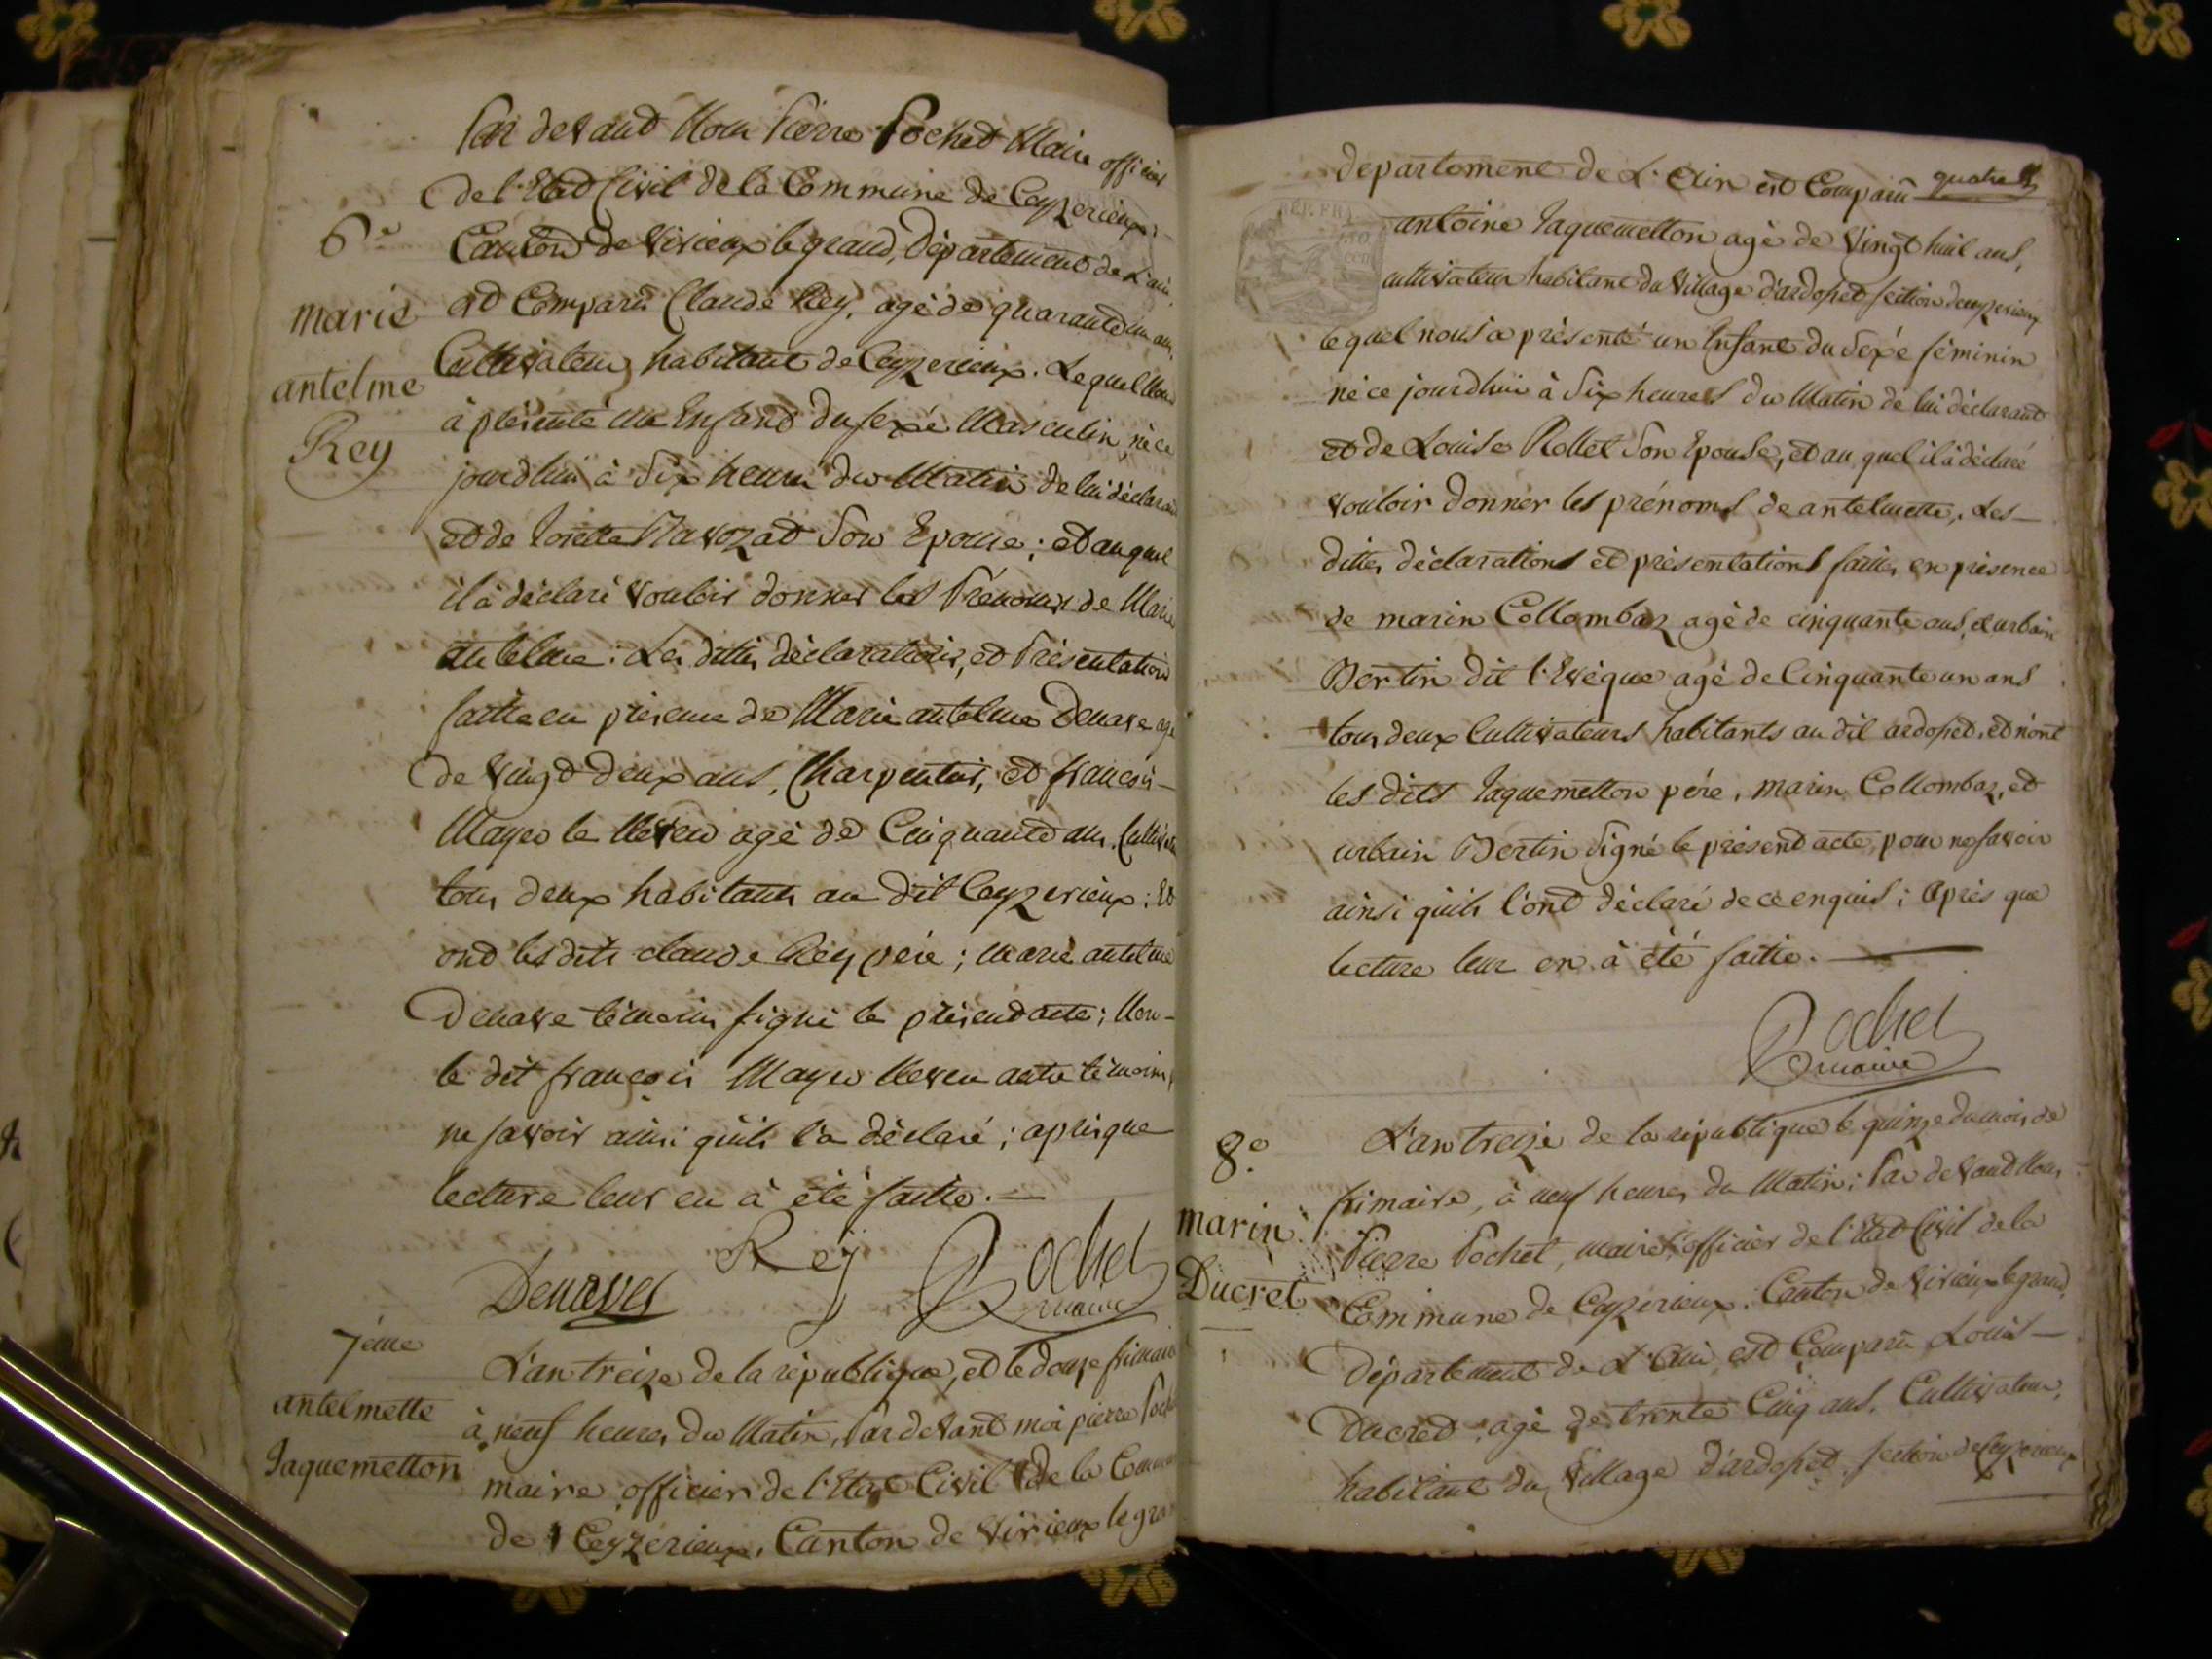 Par devand Nous Pierre Pochet Maire officier
de l'Etat Civil de la Commune de Ceyzerieux,
6e
Canton de Virieux le grand, Département de L'ain
marie
est Comparu Claude Rey, agé de quarante un ans,
antelme
Cultivateur, habitant de Ceyzerieux. Lequel Nous
Rey
à présenté un Enfand du sexe Masculin, né ce
jourdhui à Six heures du Matin de lui déclarant
et de Josette Navozat Son Epouse; et auquel
il à déclaré Vouloir donner les Prénoms de Marie
antelme: Les dittes déclarations, et Présentation
faitte en présence de Marie antelme Denave agé
de Vingt deux ans, Charpentier, et françois
Mayeu le Neveu agé de Cinquante ans, Cultivateur
tous deux habitants au dit Ceyzerieux; Et
ond les dits claude Rey père; marie antelme
Denave témoin signé le présend acte; Non
le dit françois Mayeu Neveu autre témoin,
ne savoir ainsi quils l'a déclaré; après que
lecture leur en à été faitte.
Rey
Pochet
maire
Denaves
7eme
L'an treize de la république, et le douze frimaire
antelmette
à neuf heures du Matin, Par devant moi pierre Pochet
Jaquemetton
maire officier de l'Etat Civil de la Commune
de Ceyzerieux, Canton de Virieux le grand
quatre
departement de L'Ain est Comparu
antoine Jaquemetton agé de Vingt huit ans,
cultivateur habitant du Village d'ardosset section de ceyzerieux
lequel nous a présenté un Enfant du Sexe féminin
né ce jourdhui à Six heures du Matin de lui déclarant
et de Louise Rollet Son Epouse, et au quel il à déclaré
vouloir donner les prénoms de antelmette, Les
dittes déclarations et présentations faittes en présence
de marin Collombaz agé de cinquante ans, et urbain
Bertin dit l'Evèque agé de Cinquante un ans
tous deux Cultivateurs habitants au dit ardosset, et n'ont
les dits Jaquemetton père, marin Collombaz, et
urbain Bertin Signé le présend acte, pour ne savoir
ainsi quils l'ond déclaré de ce enquis; Après que
lecture leur en à été faitte.
Pochet
maire
8.e
L'an treize de la république le quinze du mois de
frimaire, à neuf heures du Matin; Par devand Nous
marin
Pierre Pochet, maire, officier de l'Etat Civil de la
Ducret
Commune de Ceyzerieux, Canton de Virieux le grand,
Département de L'Ain, est Comparu Louis
Ducret, agé de trente Cinq ans, Cultivateur,
habitant du Village d'ardosset, section de Ceyzerieux